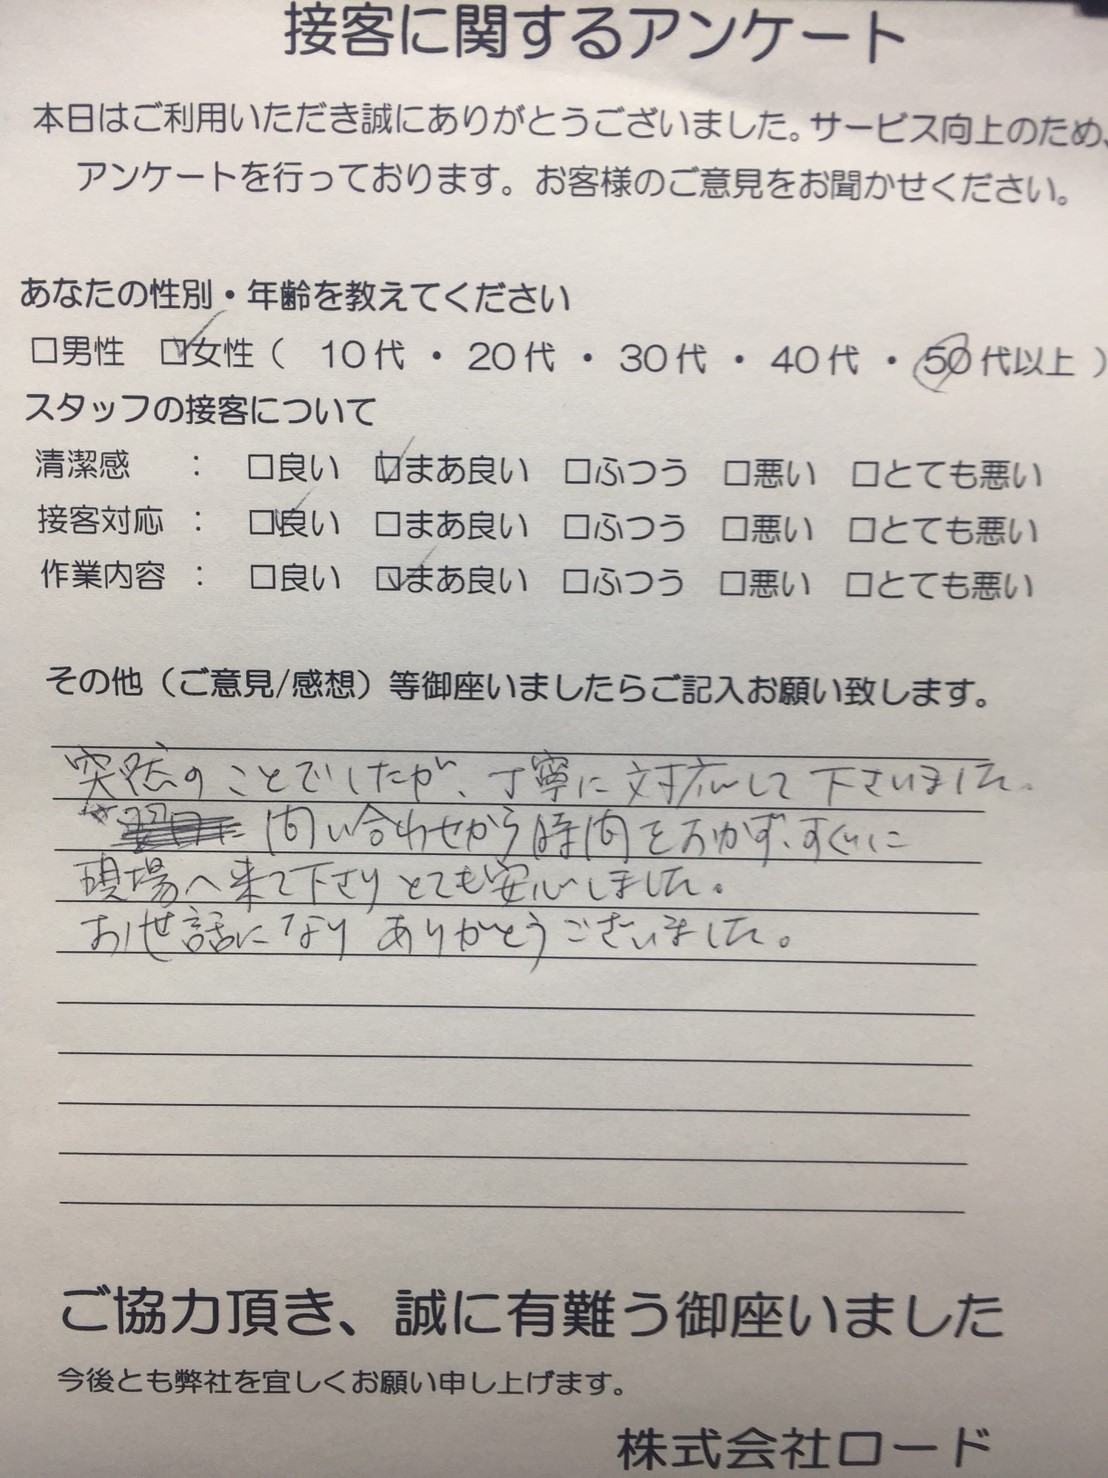 接客に関するアンケート
本日はご利用いただき誠にありがとうございました。サービス向上のため、
アンケートを行っております。お客様のご意見をお聞かせください。
あなたの性別・年齢を教えてください
□男性 ☑女性（ 10代 ・ 20代 ・ 30代 ・ 40代 ・ 50代以上 ）
スタッフの接客について
清潔感 ： □良い ☑まあ良い □ふつう □悪い □とても悪い
接客対応 ： ☑良い □まあ良い □ふつう □悪い □とても悪い
作業内容 ： □良い ☑まあ良い □ふつう □悪い □とても悪い
その他（ご意見/感想）等御座いましたらご記入お願い致します。
突然のことでしたが、丁寧に対応して下さいました。
問い合わせから時間をおかず、すぐに
現場へ来て下さりとても安心しました。
お世話になりありがとうございました。
ご協力頂き、誠に有難う御座いました
今後とも弊社を宜しくお願い申し上げます。
株式会社ロード